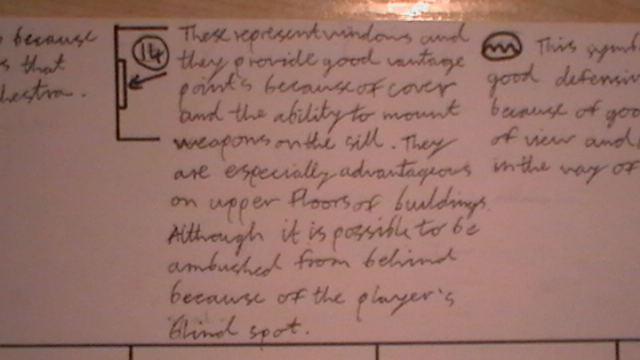 because
s that
hestra.
14
These represent windows and
they provide good vantage
point's because of cover
and the ability to mount
weapons on the sill. They
are especially advantageous
on upper floors of buildings.
Although it is possible to be
ambushed from behind
because of the player's
blind spot.
This symb
good defensiv
because of goo
of view and
in the way of